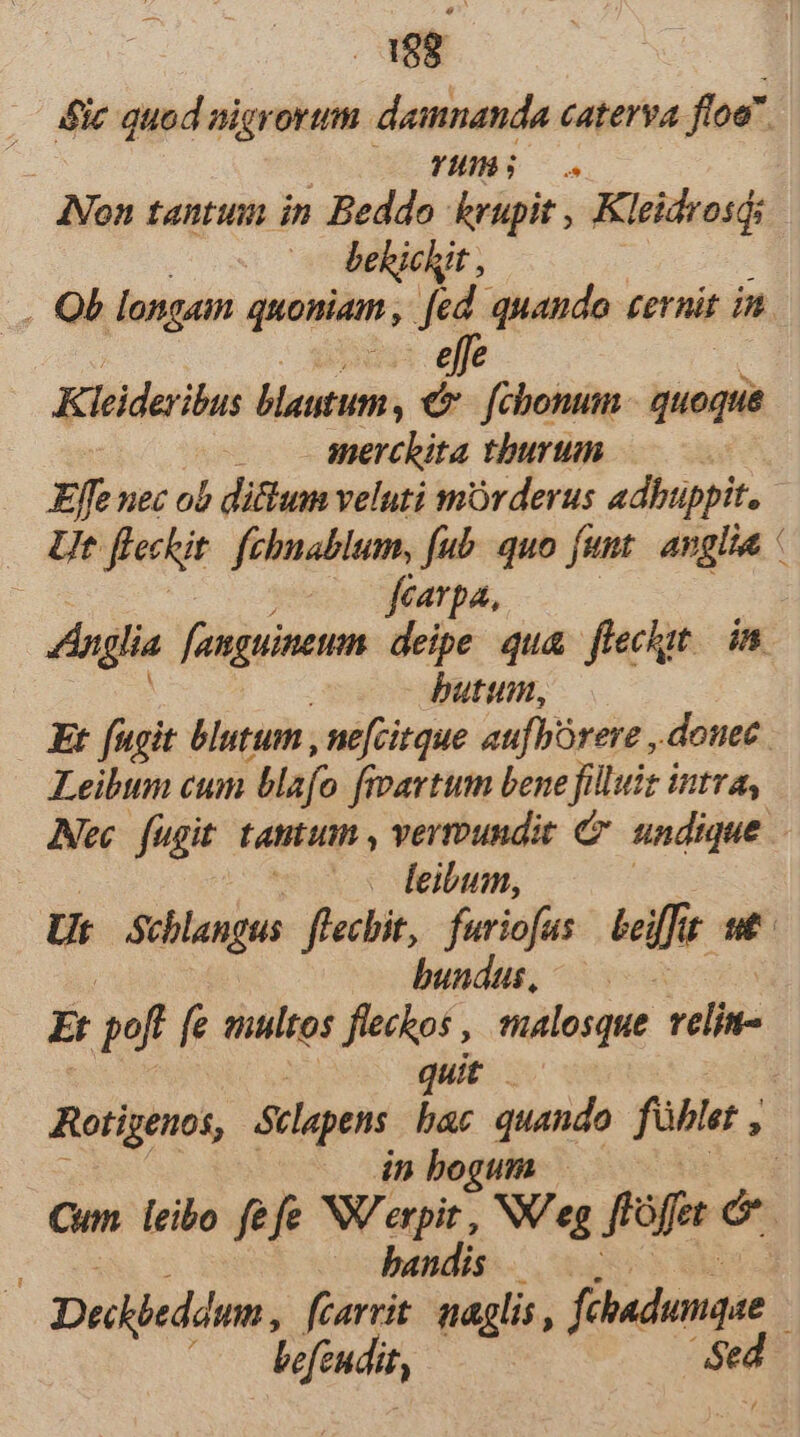 188
Sic quod nigrorum damnanda caterva floo⁓
rum;
Non tantum in Beddo krupit, Kleidrosq́;
bekickit,
Ob longam quoniam, ſed quando cernit in
eſſe
Kleideribus blautum, & ſchonum quoque
merckita thurum
Eſſe nec ob dictum veluti mörderus adhuppit.
Ut ſteckit ſchnablum, ſub quo ſunt angliæ
ſcarpæ,
Anglia ſanguineum deipe quæ ſteckit in
hutum,
Et ſugit blutum, neſcitque aufhörere, donec
Leibum cum blaſo ſwartum bene filluit intra,
Nec ſugit tantum, verwundit & undique
leibum,
Ut Schlangus ſtechit, furioſus beiſſit ut
hundus,
Et poſt ſe multos fleckos, malosque relin-
quit
Rotigenos, Sclapens hac quando fühlet,
in hogum
Cum leibo ſeſe Werpit, Weg ſtöſſet &
handis
Deckbeddum, ſcarrit naglis, ſchadumque
beſeudit,
Sed